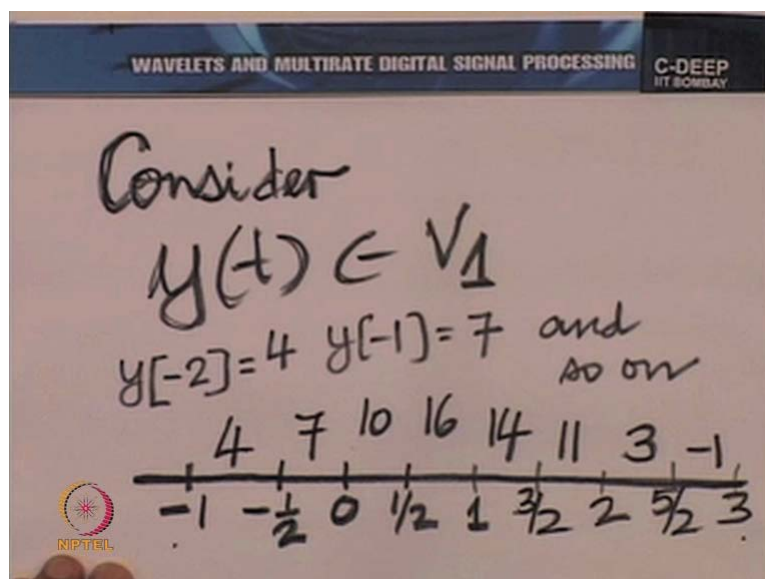 WAVELETS AND MULTIRATE DIGITAL SIGNAL PROCESSING
C-DEEP
IIT BOMBAY
Consider
y(t) ∈ V1
y[-2]=4 y[-1]=7 and
so on
4 7 10 16 14 11 3 -1
-1 -1/2 0 1/2 1 3/2 2 5/2 3
NPTEL